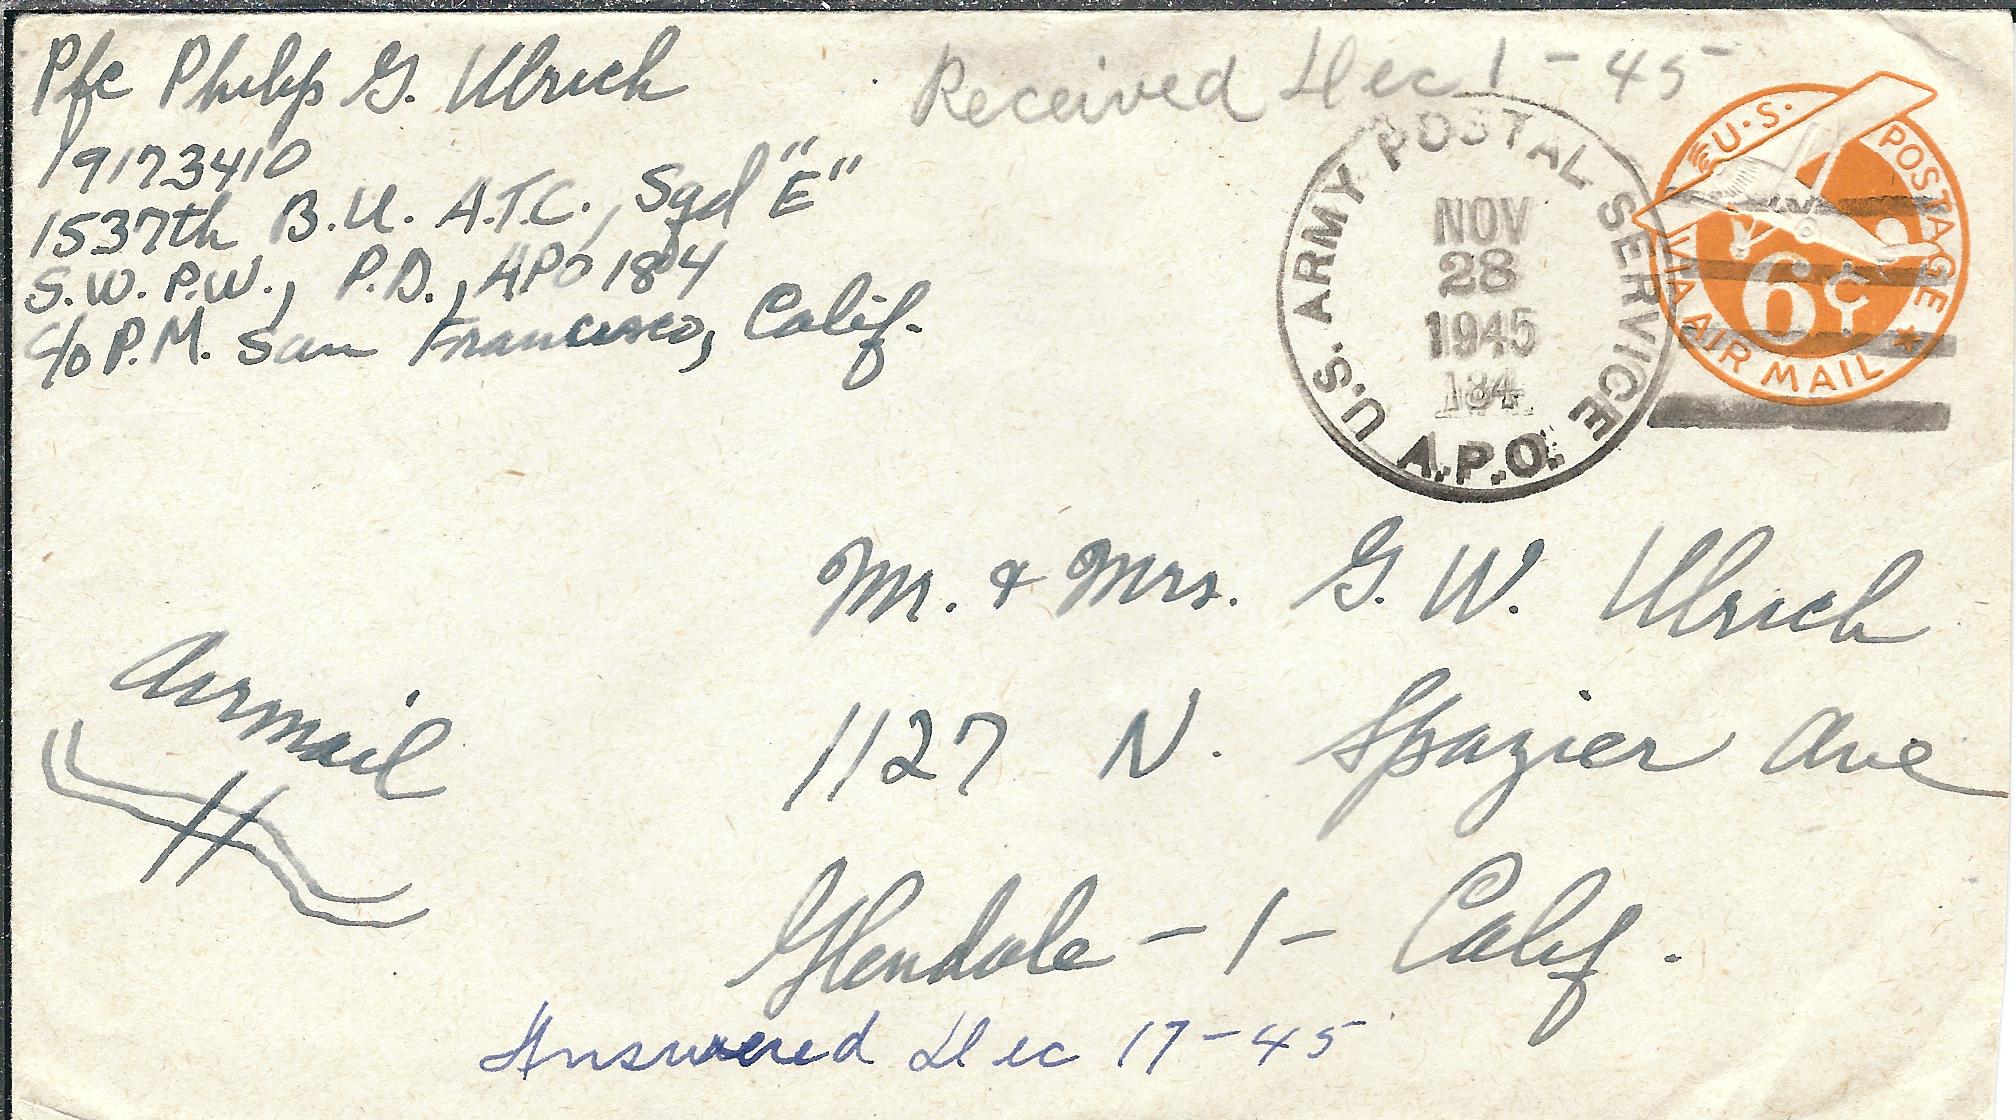 Pfc Philip G. Ulrich
19173410
1537th B.U. A.T.C., Sqd "E"
S.W.P.W., P.D., APO 184
c/o P.M. San Francisco, Calif.
Received Dec 1 - 45
U.S. ARMY POSTAL SERVICE
NOV
28
1945
184
A.P.O.
U.S. POSTAGE
6¢
VIA AIR MAIL
Mr. & Mrs. G. W. Ulrich
1127 N. Spazier Ave
Glendale - 1 - Calif.
Airmail
Answered Dec 17-45